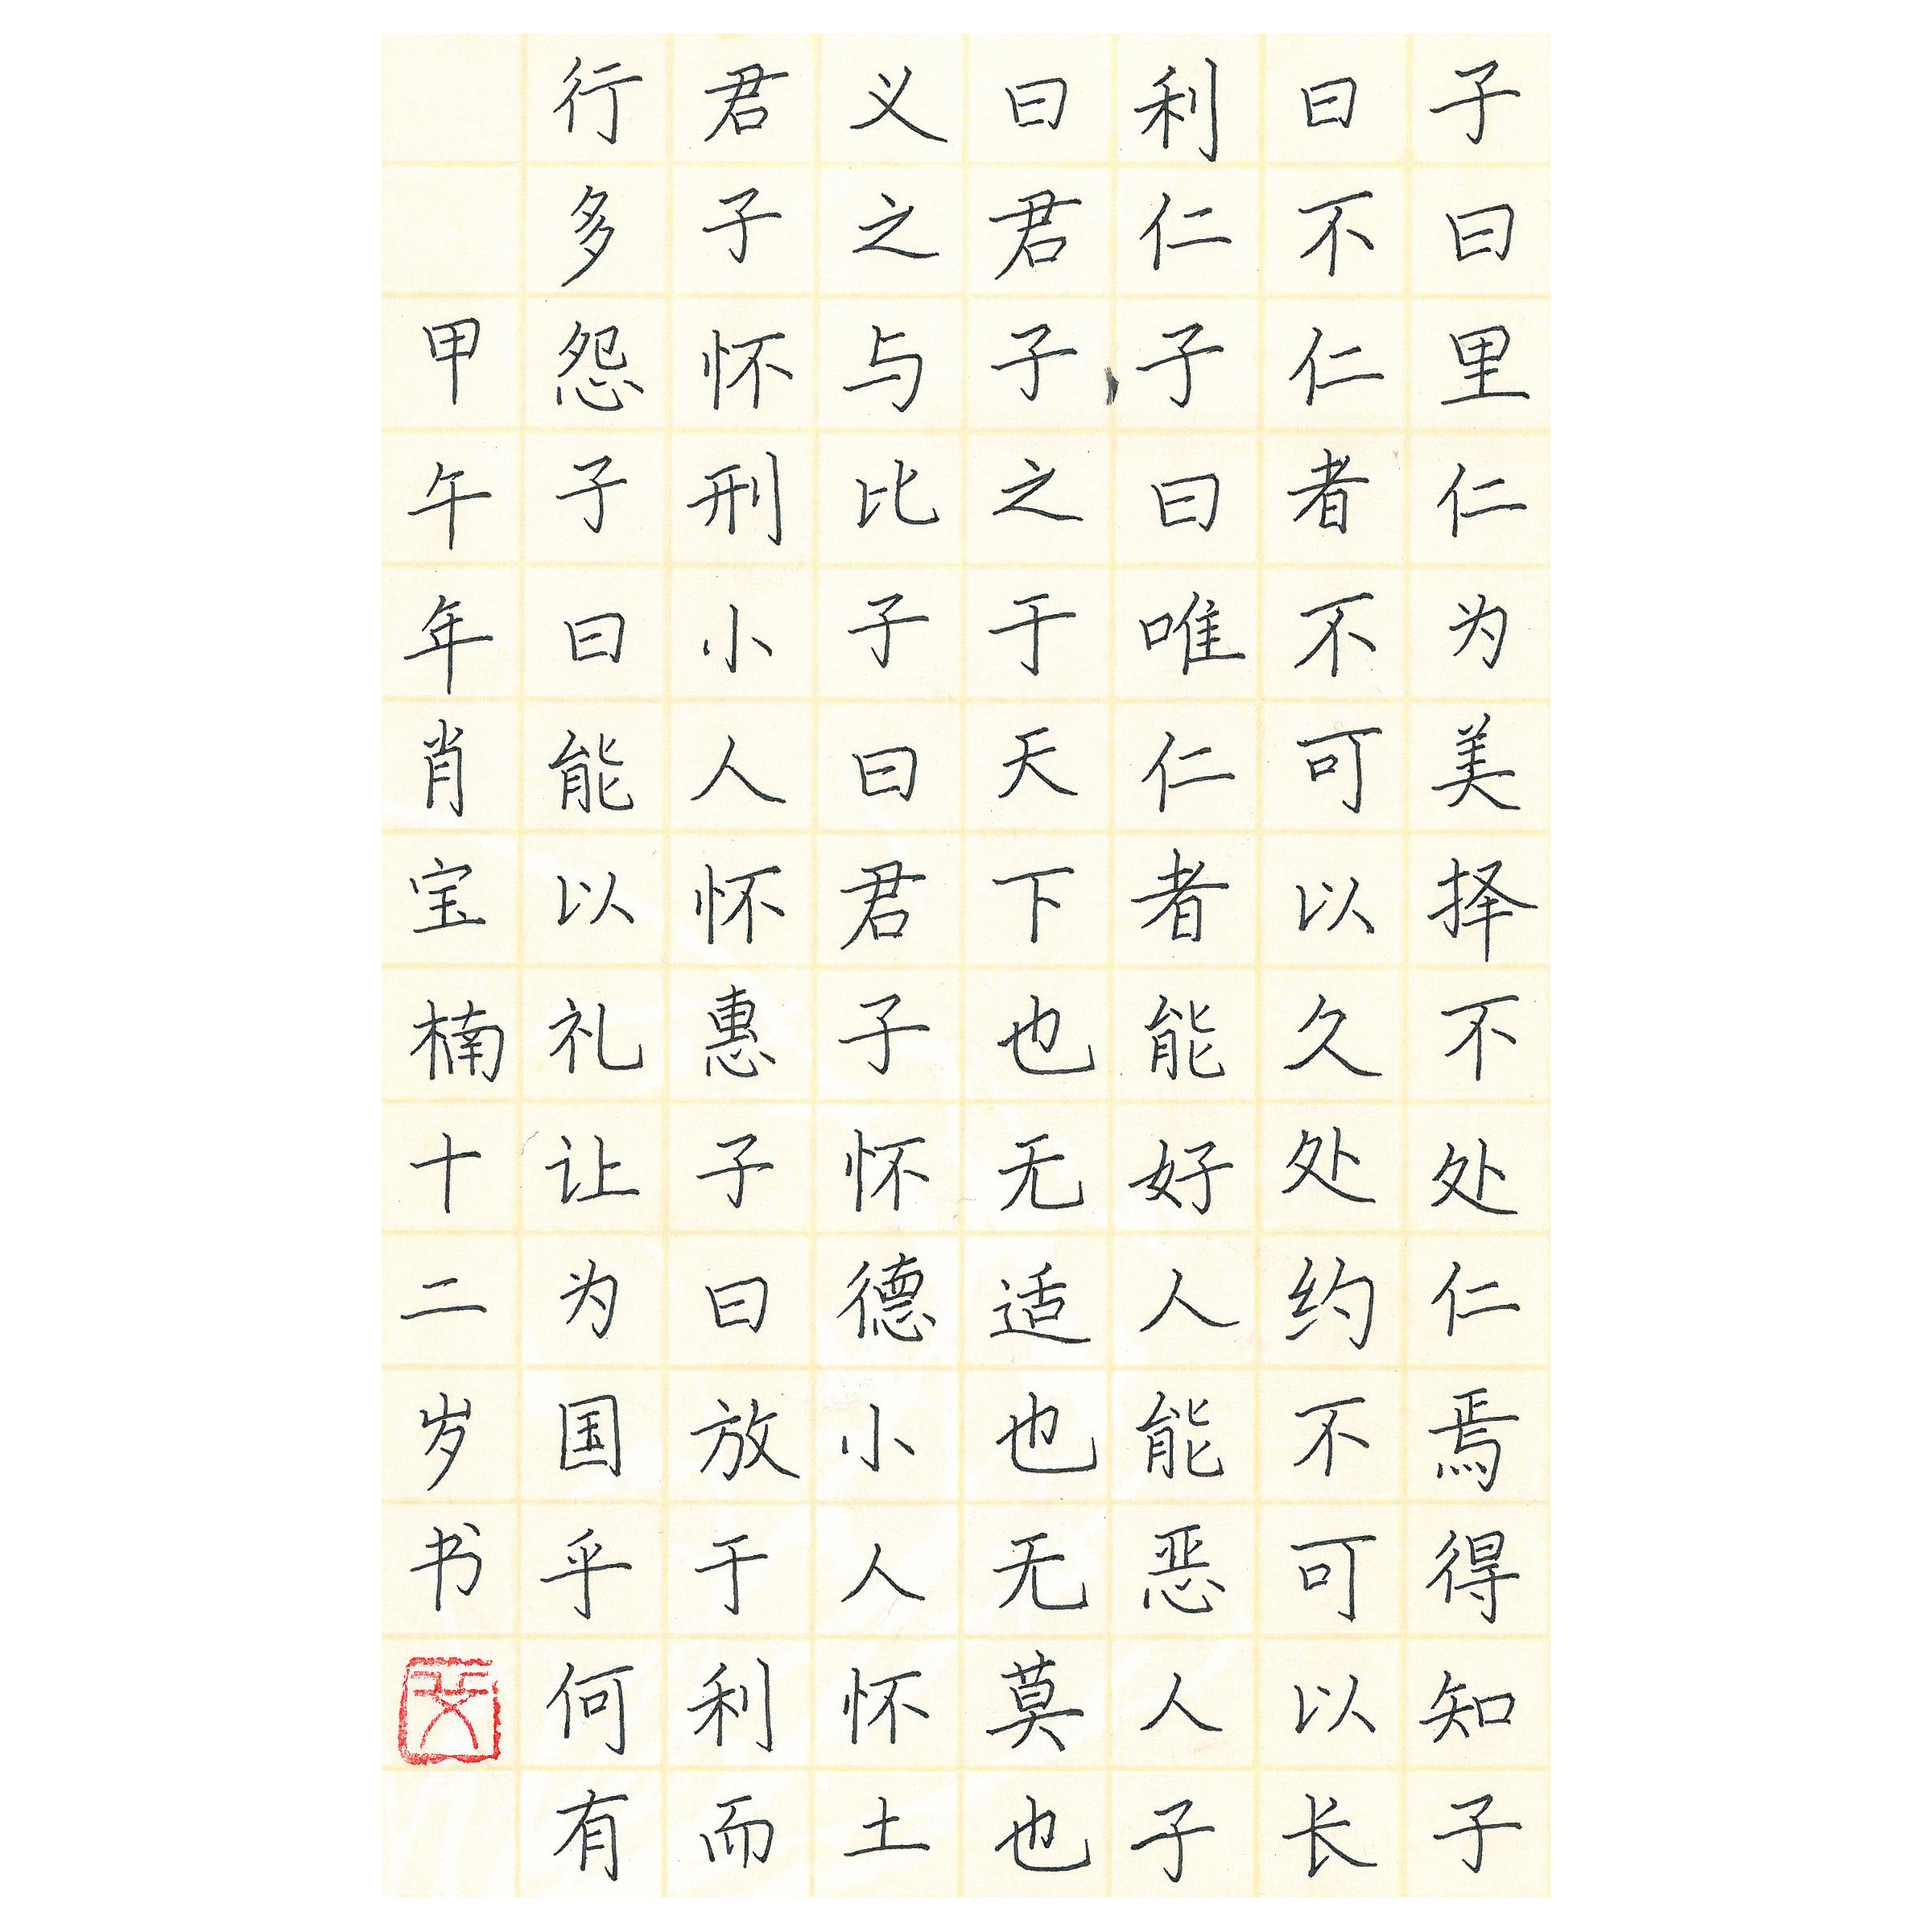 子曰里仁为美择不处仁焉得知子
曰不仁者不可以久处约不可以长
利仁子曰唯仁者能好人能恶人子
曰君子之于天下也无适也无莫也
义之与比子曰君子怀德小人怀土
君子怀刑小人怀惠子曰放于利而
行多怨子曰能以礼让为国乎何有
甲午年肖宝楠十二岁书